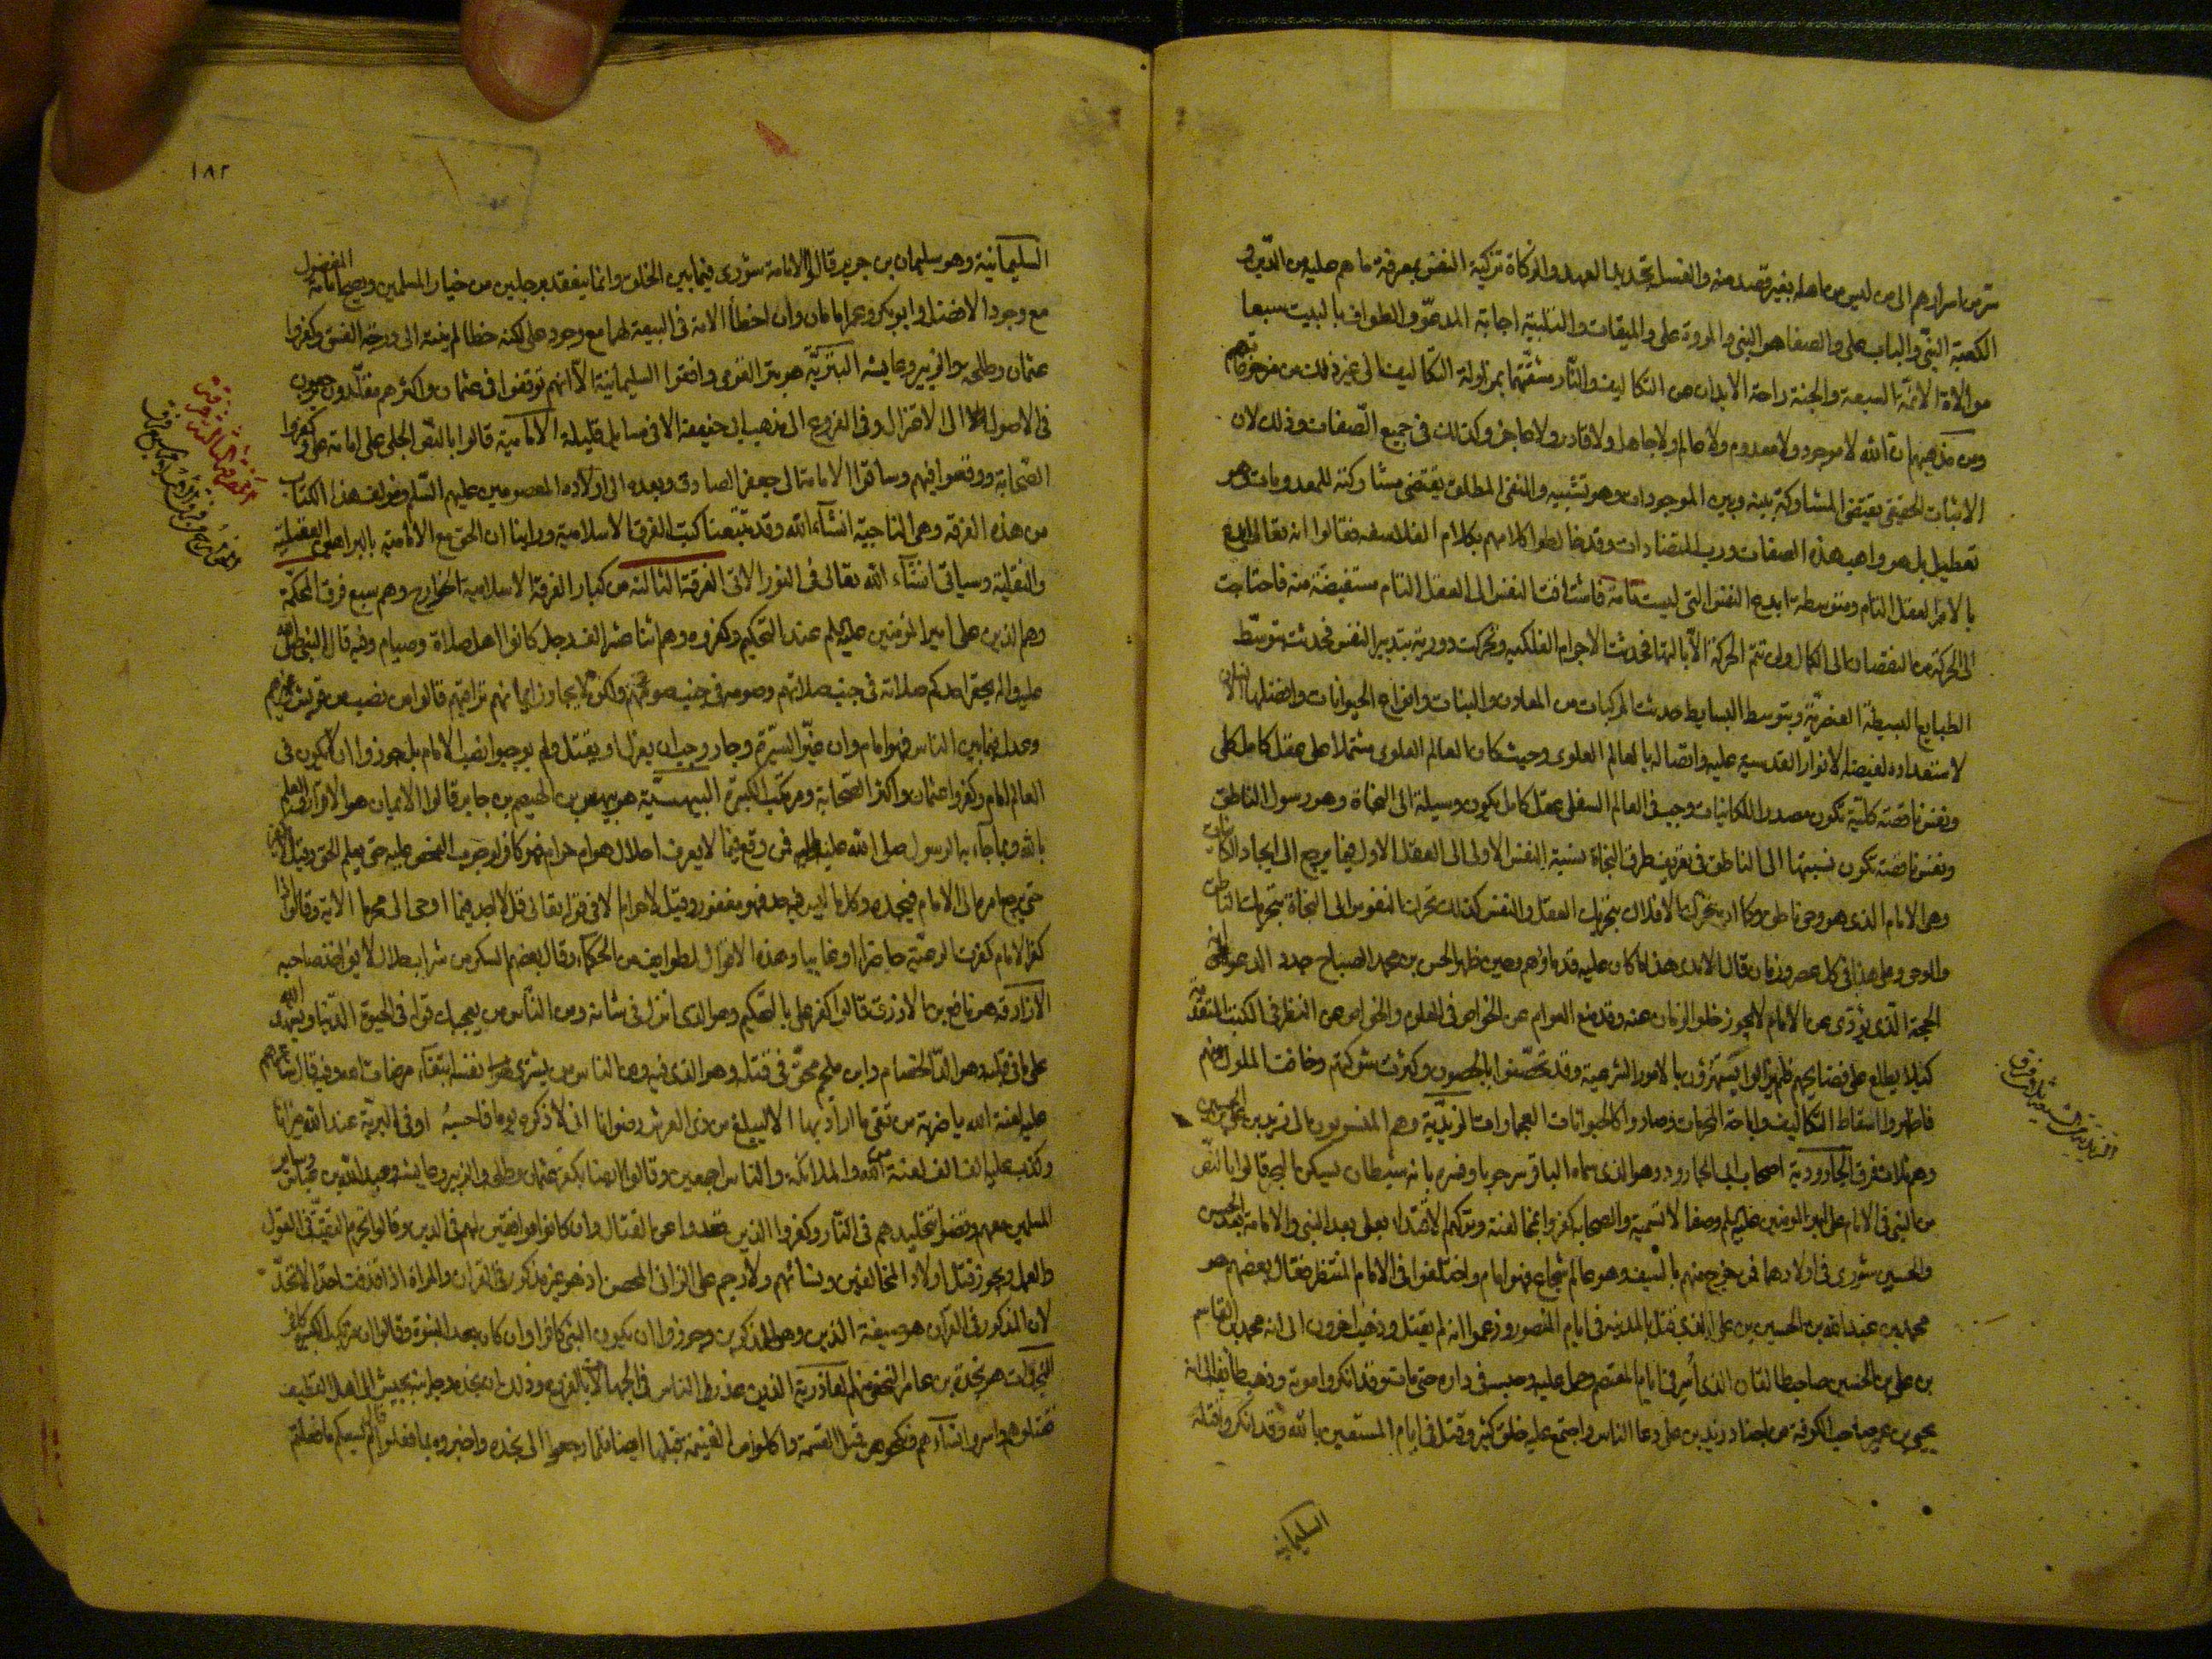 سر من اسرارهم الى من ليس من اهله بغير قصد منه والغسل تجديد العهد والزكاة تزكية النفس بمعرفة ما هم عليه من الدين و
الكعبة النبي والباب علي والصفا هو النبي والمروة علي والميقات والتلبية اجابة المدعو والطواف بالبيت سبعا
موالاة الائمة السبعة والجنة راحة الابدان من التكاليف والنار مشقتها بمزاولة التكاليف الى غير ذلك من خرافاتهم
ومن مذهبهم ان الله لا موجود ولا معدوم ولا عالم ولا جاهل ولا قادر ولا عاجز وكذلك في جميع الصفات وذلك لان
الاثبات الحقيقي يقتضي المشاركة بينه وبين الموجودات وهو تشبيه والنفي المطلق يقتضي مشاركته للمعدومات وهو
تعطيل بل هو واهب هذه الصفات ورب المتضادات وقد خلطوا كلامهم بكلام الفلاسفه فقالوا انه تعالى ابدع
بالامر العقل التام وبتوسطه ابدع النفس التي ليست تامة فاشتاقت النفس الى العقل التام مستفيضة منه فاحتاجت
الى الحركة من النقصان الى الكمال ولن تتم الحركة الا بالتها فحدثت الاجرام الفلكيه وتحركت دورية بتدبير النفس فحدثت بتوسط
الطبايع البسيطة العنصرية وبتوسط البسايط حدثت المركبات من المعادن والنبات وانواع الحيوانات وافضلها الانسان
لاستعداده لفيض الانوار القدسية عليه واتصاله بالعالم العلوي وحيث كان العالم العلوي مشتملا على عقل كامل كلي
ونفس ناقصة كلية تكون مصدرا للكائنات وجب في العالم السفلي عقل كامل يكون وسيلة الى النجاة وهو رسول الناطق
ونفس ناقصة تكون نسبتها الى الناطق في تعريف طرق النجاة نسبة النفس الاولى الى العقل الاول فيما يرجع الى ايجاد الكاينات
وهي الامام الذي هو وصي ناطق وكما ان تحرك الافلاك بتحريك العقل والنفس كذلك تحرك النفوس الى النجاة بتحريك الناطق
والوصي وعلى هذا في كل عصر وزمان قال الامدي هذا ما كان عليه قدماؤهم وحين ظهر الحسن بن محمد الصباح جدد الدعوة على انه
الحجة الذي يؤدي عن الامام لا يجوز خلو الزمان عنه وقد منع العوام عن الخواص في العلوم والخواص عن النظر في الكتب المتقدمة
كيلا يطلع على فضايحهم ثم لم يزالوا يستهزؤن بالامور الشرعية وقد تحصنوا بالحصون وكثرت شوكتهم وخافت الملوك منهم
فاظهروا اسقاط التكاليف واباحة المحرمات وصاروا كالحيوانات العجماوات الزيدية وهم المنسوبون الى زيد بن علي بن الحسين
وهم ثلاث فرق الجارودية اصحاب ابي الجارود وهو الذي سماه الباقر سرحوبا وفسره بانه شيطان يسكن البحر قالوا بالنص
من النبي في الامام علي امير المؤمنين عليه السلام وصفا لا تسمية والصحابة كفروا بمخالفته وتركهم الاقتداء بعلي بعد النبي والامامة بعد الحسن
والحسين شورى في اولادهما فمن خرج منهم بالسيف وهو عالم شجاع فهو امام واختلفوا في الامام المنتظر فقال بعضهم هو
محمد بن عبد الله بن الحسين بن علي الذي قتل بالمدينة في ايام المنصور وزعموا انه لم يقتل وذهب اخرون الى انه محمد بن القاسم
بن علي بن الحسين صاحب طالقان الذي اسر في ايام المعتصم وحمل عليه وحبسه في داره حتى مات وقد انكروا موته وذهب طائفة الى انه
يحيى بن عمير صاحب الكوفة من احفاد زيد بن علي دعا الناس واجتمع عليه خلق كثير وقتل في ايام المستعين بالله وقد انكروا قتله
السليمانية
الزيدية ثلاث فرق
١٨٢
السليمانية وهو سليمان بن جرير قالوا الامامة شورى فيما بين الخلق وانما ينعقد برجلين من خيار المسلمين ويصح امامة المفضول
مع وجود الافضل وابو بكر وعمر امامان وان اخطأ الامة في البيعة لهما مع وجود علي لكنه خطأ لم ينته الى درجة الفسق وكفروا
عثمان وطلحة والزبير وعايشة البترية هو بتر القومي وافقوا السليمانية الا انهم توقفوا في عثمان واكثرهم مقلدون يرجعون
في الاصول الى الاعتزال وفي الفروع الى مذهب ابي حنيفة الا في مسايل قليلة الامامية قالوا بالنص الجلي على امامة علي وكفروا
الصحابة ووقعوا فيهم وساقوا الامامة الى جعفر الصادق وبعده الى اولاده المعصومين عليهم السلم ومؤلف هذا الكتاب
من هذه الفرقة وهي الناجية انشاء الله وقد تتبعنا كتب الفرق الاسلامية وراينا ان الحق مع الامامية بالبراهين العقلية
والنقلية وسياتي انشاء الله تعالى في النور الاتي الفرقة الثالثة من كبار الفرقة الاسلامية الخوارج وهم سبع فرق المحكمة
وهم الذين على امير المؤمنين عليه السلم عند التحكيم وكفروه وهم اثنا عشر الف رجل كانوا اهل صلاة وصيام وفيه قال النبي صلى الله
عليه واله يحقر احدكم صلاته في جنب صلاتهم وصومه في جنب صومهم ولكن لا يجاوز ايمانهم تراقيهم قالوا من نصب من قريش وغيرهم
وعدل فيما بين الناس فهو امام وان غير السيرة وجار وجب ان يعزل او يقتل ولم يوجبوا نصب الامام بل جوزوا ان لا يكون في
العالم امام وكفروا عثمان واكثر الصحابة ومرتكب الكبيرة البيهسية هو بيهس بن الهيصم بن جابر قالوا الايمان هو الاقرار والعلم
بالله وبما جاء به الرسول صلى الله عليه واله فمن وقع فيما لا يعرف احلال هو ام حرام فهو كافر لوجوب الفحص عليه حتى يعلم الحق وقيل لا يكفر
حتى يرجع امره الى الامام فيحده وكل ما ليس فيه حد فهو مغفور وقيل لا حرام الا في قوله تعالى قل لا اجد فيما اوحي الى محرما الاية وقالوا اذا
كفر الامام كفرت الرعية حاضرا او غايبا وهذه الاقوال لطوايف من الحكماء وقال بعضهم السكر من شراب حلال لا يؤاخذ صاحبه
الازارقة هو نافع بن الازرق قالوا كفر علي بالتحكيم وهو الذي انزل في شانه ومن الناس من يعجبك قوله في الحيوة الدنيا ويشهد الله
على ما في قلبه وهو الد الخصام وابن ملجم محق في قتله وهو الذي فيه ومن الناس من يشري نفسه ابتغاء مرضات الله وفيه قال شاعرهم
عليه لعنة الله يا ضربة من تقي ما اراد بها الا ليبلغ من ذي العرش رضوانا اني لاذكره يوما فاحسبه اوفى البرية عند الله ميزانا
وكذب عليه الف الف لعنة من الله والملائكة والناس اجمعين وقالوا ايضا بكفر عثمان وطلحة والزبير وعايشة وعبد الله بن عباس وساير
المسلمين معهم وقضوا بتخليدهم في النار وكفروا الذين قعدوا عن القتال وان كانوا موافقين لهم في الدين وقالوا تحرم التقية في القول
والعمل ويجوز قتل اولاد المخالفين ونسائهم ولا رجم على الزاني المحصن اذ هو غير مذكور في القران والمراة اذا قذفت احدا لا تحد
لان المذكور في القران هو صيغة الذين وهو للمذكرين وجوزوا ان يكون النبي كافرا وان كان بعد النبوة وقالوا ان مرتكب الكبيرة كافر
النجدات هو نجدة بن عامر النخعي منهم العاذرية الذين عذروا الناس في الجهالات بالفروع وذلك ان نجدة وجه ابنه بجيش الى اهل القطيف
فقتلوهم واسروا نساءهم ونكحوهن قبل القسمة واكلوا من الغنيمة قبلها ايضا فلما رجعوا الى نجدة واخبروه بما فعلوا قال لم يسعكم ما فعلتم
الفرقة الثالثة